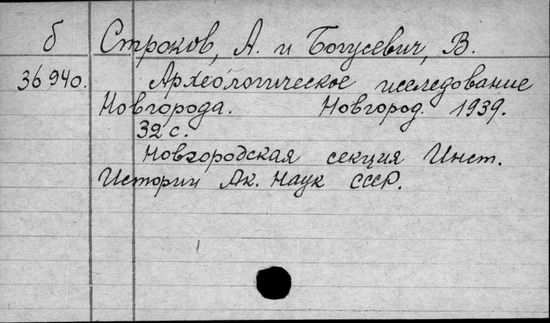 б Строков, А. и Богусевич, В.
36940. Археологическое исследование
Новгорода. Новгород. 1939.
32 с.
Новгородская секция Инст.
Истории Ак. Наук СССР.